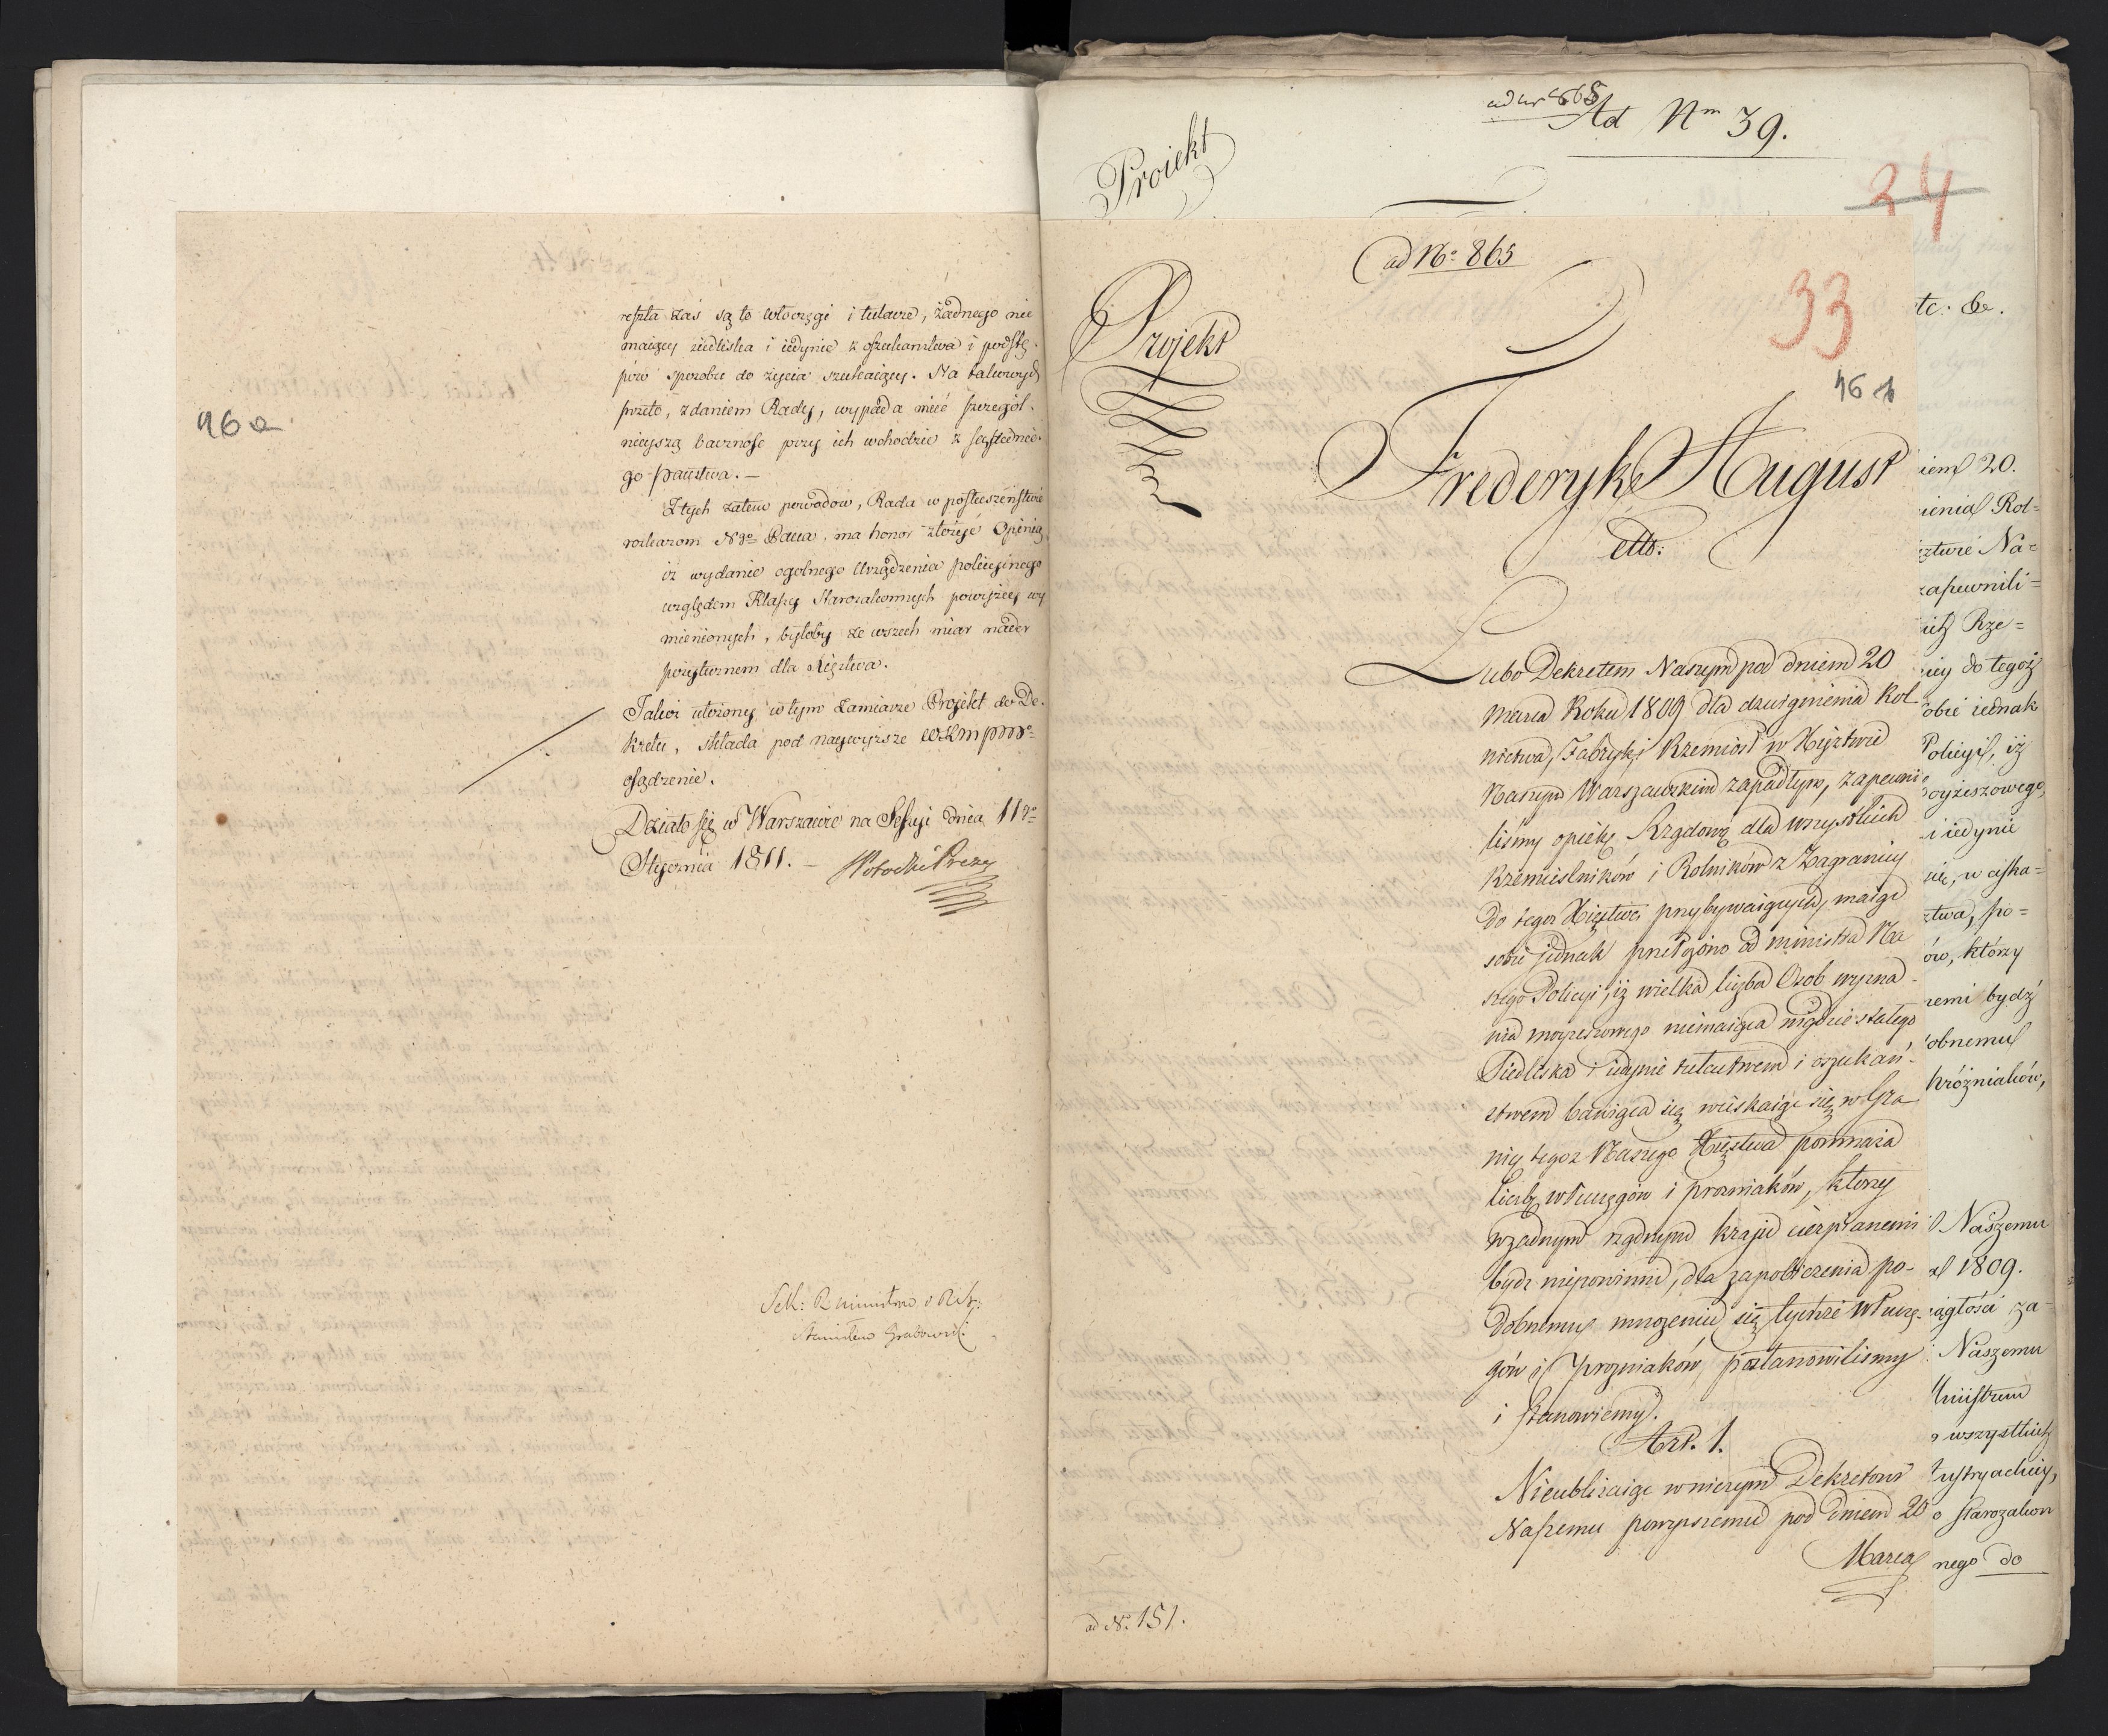 46a
reszta zaś są to włoczęgi i tułacze, żadnego nie
maiący siedliska i iedynie z oszukaństwa i podstę-
pów sposobu do życia szukaiący. Na takowych
przeto, zdaniem Rady, wypada mieć szczegól-
nieyszą baczność przy ich wchodzie z sąsiednie-
go Państwa. —
Z tych zatem powodów, Rada w posłuszeństwie
rozkazom Ngo Pana, ma honor złożyć Opinią,
iż wydanie ogolnego Urządzenia policyinego
względem Klassy Starozakonnych powyżéy wy
mienionych, byłoby ze wszech miar nader
pożytecznem dla Xięstwa.
Jakoż ułożony w tym Zamiarze Projekt do De-
kretu, składa pod naywyższe
osądzenie.
Działo się w Warszawie na Sessyi dnia 11go
Stycznia 1811. — Potocki Prezes
Sek: R Ministrów i R: St:
Stanisław Grabowski
ad nr 865
Ad Nm 39.
Proiekt
24
ad No 865
33
46 b
Projekt
Frederyk August
etc:
Lubo Dekretem Naszym pod dniem 20
Marca Roku 1809 dla dzwignienia Rol
nictwa, Fabryk i Rzemiosł w Xięztwie
Naszym Warszawskim zapadłym, zapewni-
liśmy opiekę Rządową dla wszystkich
Rzemieslników i Rolników z Zagranicy
do tegoż Xięstwa przybywaiących, maiąc
sobie jednak przełożono od Ministra Na
szego Policyi, iż wielka liczba Osob wyzna-
nia moyżeszowego niemaiąca nigdzie stałego
Siedliska i iedynie tułactwem i oszukań-
stwem bawiąca się wciskaiąc się w Gra
nicę tegoż Naszego Xięstwa pomnaża
liczbę włuczęgów i prozniaków, ktorzy
w żadnym rządnym kraju cierpianemi
bydz niepowinni, dla zapobieżenia po-
dobnemu mnożeniu się tychże włuczę-
gów i prozniaków, postanowilismy
i stanowiemy.
Art. 1.
Nieubliżaiąc w niczym Dekretowi
Naszemu powyższemu pod Dniem 20
Marca
ad No 151.
etc: &c.
20.
Rol=
Na=
zapewnili=
Rze=
do tegoż
iednak
Policyi, iż
i iedynie
po=
którzy
bydź
próżniaków,
Naszemu
1809.
za-
Naszemu
wszystkich
Starozakon
nego do